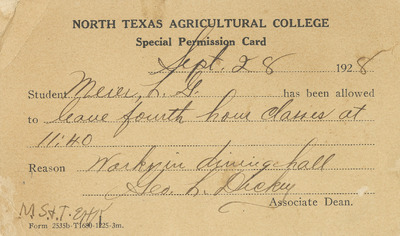 NORTH TEXAS AGRICULTURAL COLLEGE
Special Permission Card
Sept. 28 1928
Student Meier, L. G. has been allowed
to leave fourth hour classes at
11:40
Reason Works in dining hall
Geo. L. Dickey
Associate Dean.
M.S.&T.
Form 2535b-T1680-1125-3m.